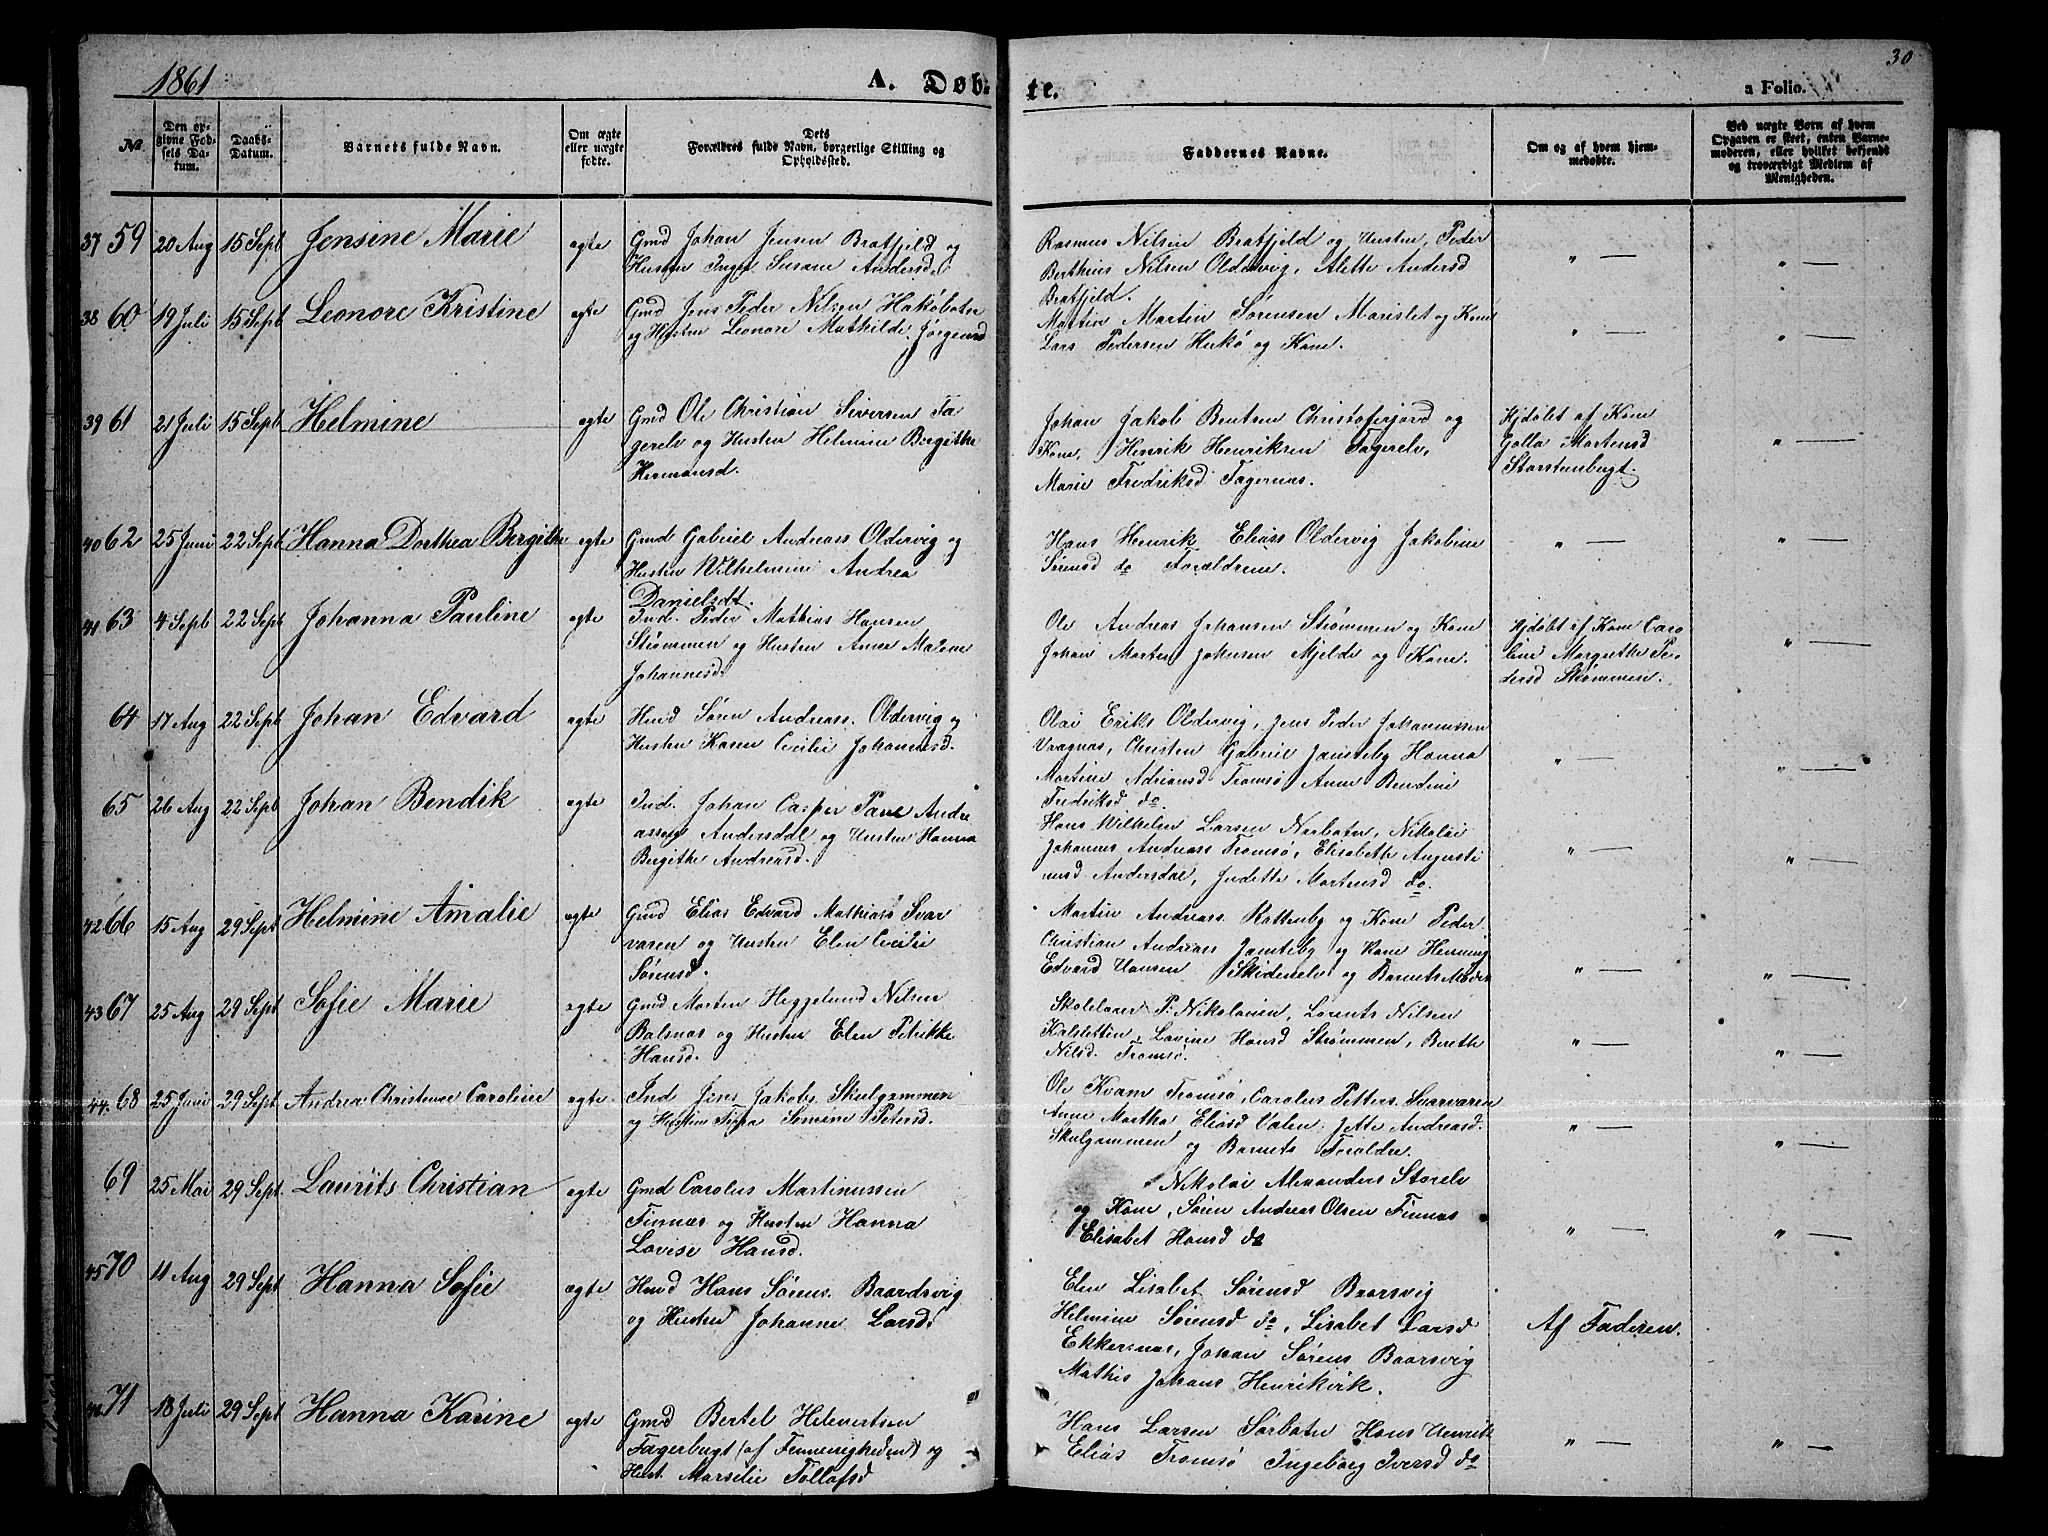 1861
A. Døb-
te.
a Folio.
30
No
Den op-
givne Fød-
sels Da-
tum.
Daabs-
Datum.
Barnets fulde Navn.
Om ægte
eller uægte
fødte.
Dets
Forældres fulde Navn, borgerlige Stilling og
Opholdssted.
Faddernes Navne.
Om og af hvem hjem-
medøbte.
Ved uægte Børn af hvem
Opgaven er skeet, enten Barne-
moderen, eller hvilket bekjendt
og troværdigt Medlem af
Menigheden.
37 59 20 Aug 15 Sept Jensine Marie ægte
Gmd Johan Jensen Bratfjeld og
Hustru Inger Susane Andersd.
Rasmus Nilsen Bratfjeld og Hustru, Peder
Berthius Nilsen Oldervig, Alette Andersd
Bratfjeld.
" — " —
38 60 19 Juli 15 Sept Leonore Kristine ægte
Gmd Jens Peder Nilsen Hakøbotn
og Hustru Leonore Mathilde Jørgensd
Martin Sørensen Marislet og Kone
Lars Pedersen Hakø og Kone.
" — " —
39 61 21 Juli 15 Sept Helmine ægte
Gmd Ole Christian Siversen Fa
gerelv og Hustru Helmine Bergithe
Hermansd.
Johan Jakob Bentsen Christofirjord og
Kone, Henrik Henriksen Fagerelv,
Marie Fredriksd Fagernæs.
Hjdøbt af Kone
Golla Martensd
Storstenbugt.
" —
40 62 25 Juni 22 Sept Hanna Dorthea Bergithe ægte
Gmd Gabriel Andreass Oldervig og
Hustru Wilhelmine Andrea
Danielsdt.
Hans Henrik Eliass Oldervig Jakobine
Sørensd do Forældrene.
" — " —
41 63 4 Sept 22 Sept Johanna Pauline ægte
Ind. Peder Mathias Hansen
Strømmen og Hustru Anne Malene
Johannesd.
Ole Andreas Johansen Strømmen og Kone
Johan Morten Johnsen Mjelde og Kone.
Hjdøbt af Kone Caro
line Margrethe Pe-
dersd Strømmen.
" —
64 17 Aug 22 Sept Johan Edvard ægte
Husd Søren Andreass. Oldervig og
Hustru Karen Cecilie Johannesd.
Olai Eriks Oldervig, Jens Peder Johannessen
Vaagnæs, Christen Gabriel Jamteby Hanna
Martine Adriansd Tromsø Anne Bendine
Fredriksd do.
" — " —
65 26 Aug 22 Sept Johan Bendik ægte
Ind. Johan Casper Pave Andre
assen Andersdal og Hustru Hanna
Bergithe Andreasd.
Hans Wilhelm Larsen Norbotn, Nikolai
Johannes Andreass Tromsø, Elisabeth Augusti
nusd Andersdal, Judette Martensd do.
" — " —
42 66 15 Aug 29 Sept Helmine Amalie ægte
Gmd Elias Edvard Mathiass Svar
varen og Hustru Elen Cecilie
Sørensd.
Martin Andreass. Kattenby og Kone Peder
Christian Andreass Jamteby og Kone Henning
Edvard Hansen Skidenelv og Barnets Moder
" — " —
43 67 25 Aug 29 Sept Sofie Marie ægte
Gmd Morten Heggelund Nilsen
Balsnæs og Hustru Elen Petrikke
Hansd.
Skolelærer P. Nikolaisen, Lorents Nilsen
Kalsletten, Lavine Hansd Strømmen, Bereth
Nilsd. Tromsø.
" — " —
44. 68 25 Juni 29 Sept Andrea Christense Caroline ægte
Ind Jens Jakobs. Skulgammen
og Hustru Sofia Simine Petersd.
Ole Kvam Tromsø, Carolus Petters. Svarvaren
Anne Martha Eliasd Valen, Jette Andreasd.
Skulgammen og Barnets Forældre.
" — " —
69 25 Mai 29 Sept. Laurits Christian ægte
Gmd Carolus Martinussen
Finnæs og Hustru Hanna
Lovise Hansd.
Nikolai Alexanders Storelv
og Kone, Søren Andreas Olsen Finnæs
Elisabet Hansd do
" — " —
45 70 11 Aug 29 Sept Hanna Sofie ægte
Husd Hans Sørens. Baardsvig
og Hustru Johanne Larsd.
Elen Lisabet Sørensd Baarsvig
Helmine Sørensd do, Lisabet Larsd
Ekkersnæs, Johan Sørens Baarsvig
Mathis Johans Henrikvik.
Af Faderen.
46 71 18 Juli 29 Sept Hanna Karine ægte
Gmd Bertel Helmertsen
Fagerbugt (af Finmenigheden) og
Hust. Marselie Tollofsd
Hans Larsen Sørbotn Hans Henrik
Elias Tromsø Ingeborg Iversd do
" — " —